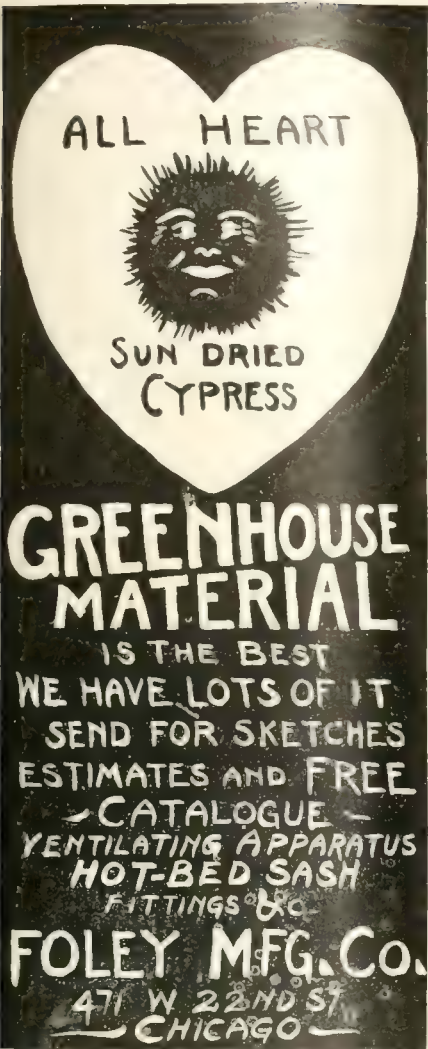 ALL HEART
SUN DRIED
CYPRESS
GREENHOUSE
MATERIAL
IS THE BEST
WE HAVE LOTS OF IT
SEND FOR SKETCHES
ESTIMATES AND FREE
CATALOGUE
VENTILATING APPARATUS
HOT-BED SASH
FITTINGS &c
FOLEY MFG. CO.
471 W 22ND ST
CHICAGO